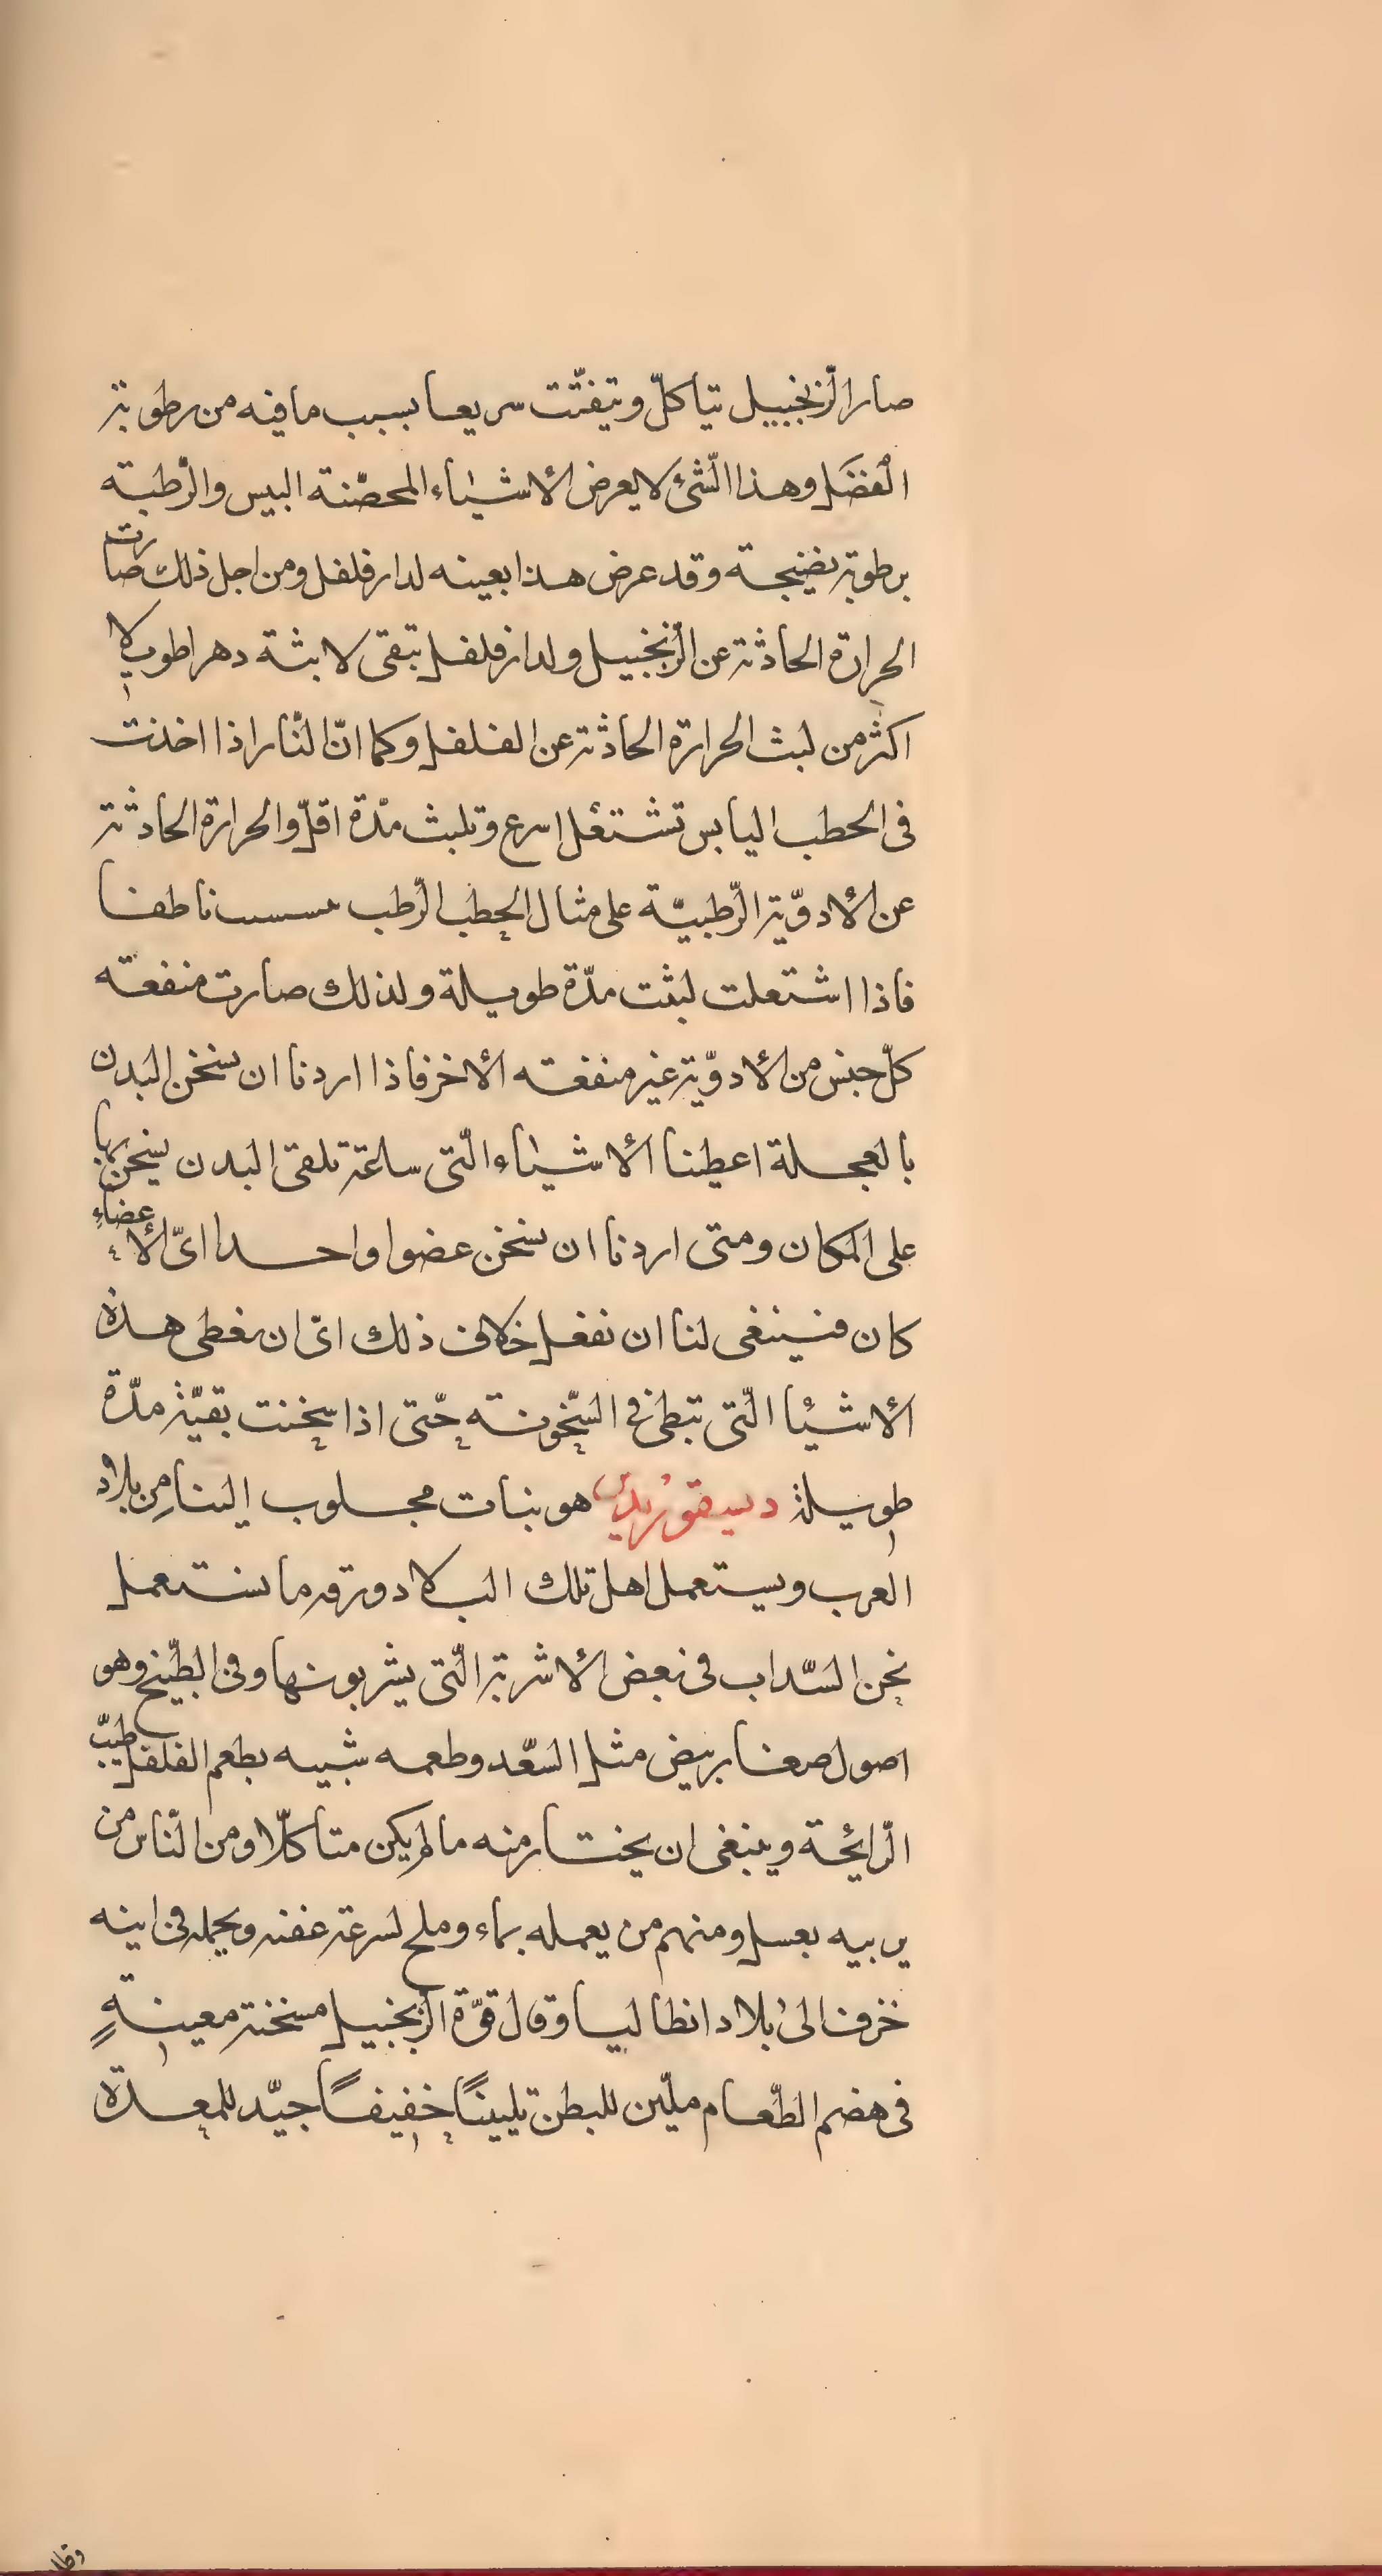 صار الزّنجبيل يتاكلّ ويتفتّت سريعا بسبب ما فيه من رطوبة
الفضل وهذا الشّئ لا يعرض الأشياء المحصّنة اليبس والرّطبة
برطوبة نضيجة وقد عرض هذا بعينه لدار فلفل ومن اجل ذلك صارت
الحرارة الحادثة عن الزّنجبيل ولدار فلفل تبقى لابثة دهرا طويلا
اكثر من لبث الحرارة الحادثة عن الفلفل وكما انّ النّار اذا اخذت
فى الحطب اليابس تشتعل اسرع وتلبث مدّة اقلّ والحرارة الحادثة
عن الأدوّية الرّطبيّة على مثال الحطب الرّطب
فاذا اشتعلت لبثت مدّة طويلة ولذلك صارت منفعته
كلّ جنس من الأدوّية غير منفعته الأخر فاذا اردنا ان نسخن البدن
بالعجلة اعطينا الأشياء الّتى ساعة تلقى البدن يسخن بها
على المكان ومتى اردنا ان نسخن عضوا واحدا اىّ الأعضاء
كان فينبغى لنا ان نفعل خلاف ذلك اىّ ان نعطى هذه
الأشيئا الّتى تبطئ فى السّخونته حتّى اذا سخنت بقيّة مدّة
طويلة ديسقوريدس هو بنات مجلوب الينا من بلاد
العرب ويستعمل اهل تلك البلاد ورقه ما نستعمل
نحن السّداب فى بعض الأشربة الّتى يشربونها وفى الطّبيخ وهو
اصول صغار بيض مثل السّعد وطعمه شبيه بطعم الفلفل طيّب
الرّايحة وينبغى ان يختار منه ما لم يكن متأكلّا ومن النّاس من
يربيه بعسل ومنهم من يعمله بماء وملح لسرعة عفنه ويحمله فى اينه
خزف الى بلاد انطاليا وقال قوّة الزّنجبيل مسخنة معينةٍ
فى هضم الطّعام مليّن للبطن تليينًا خفيفًا جيّد للمعدة
وقال